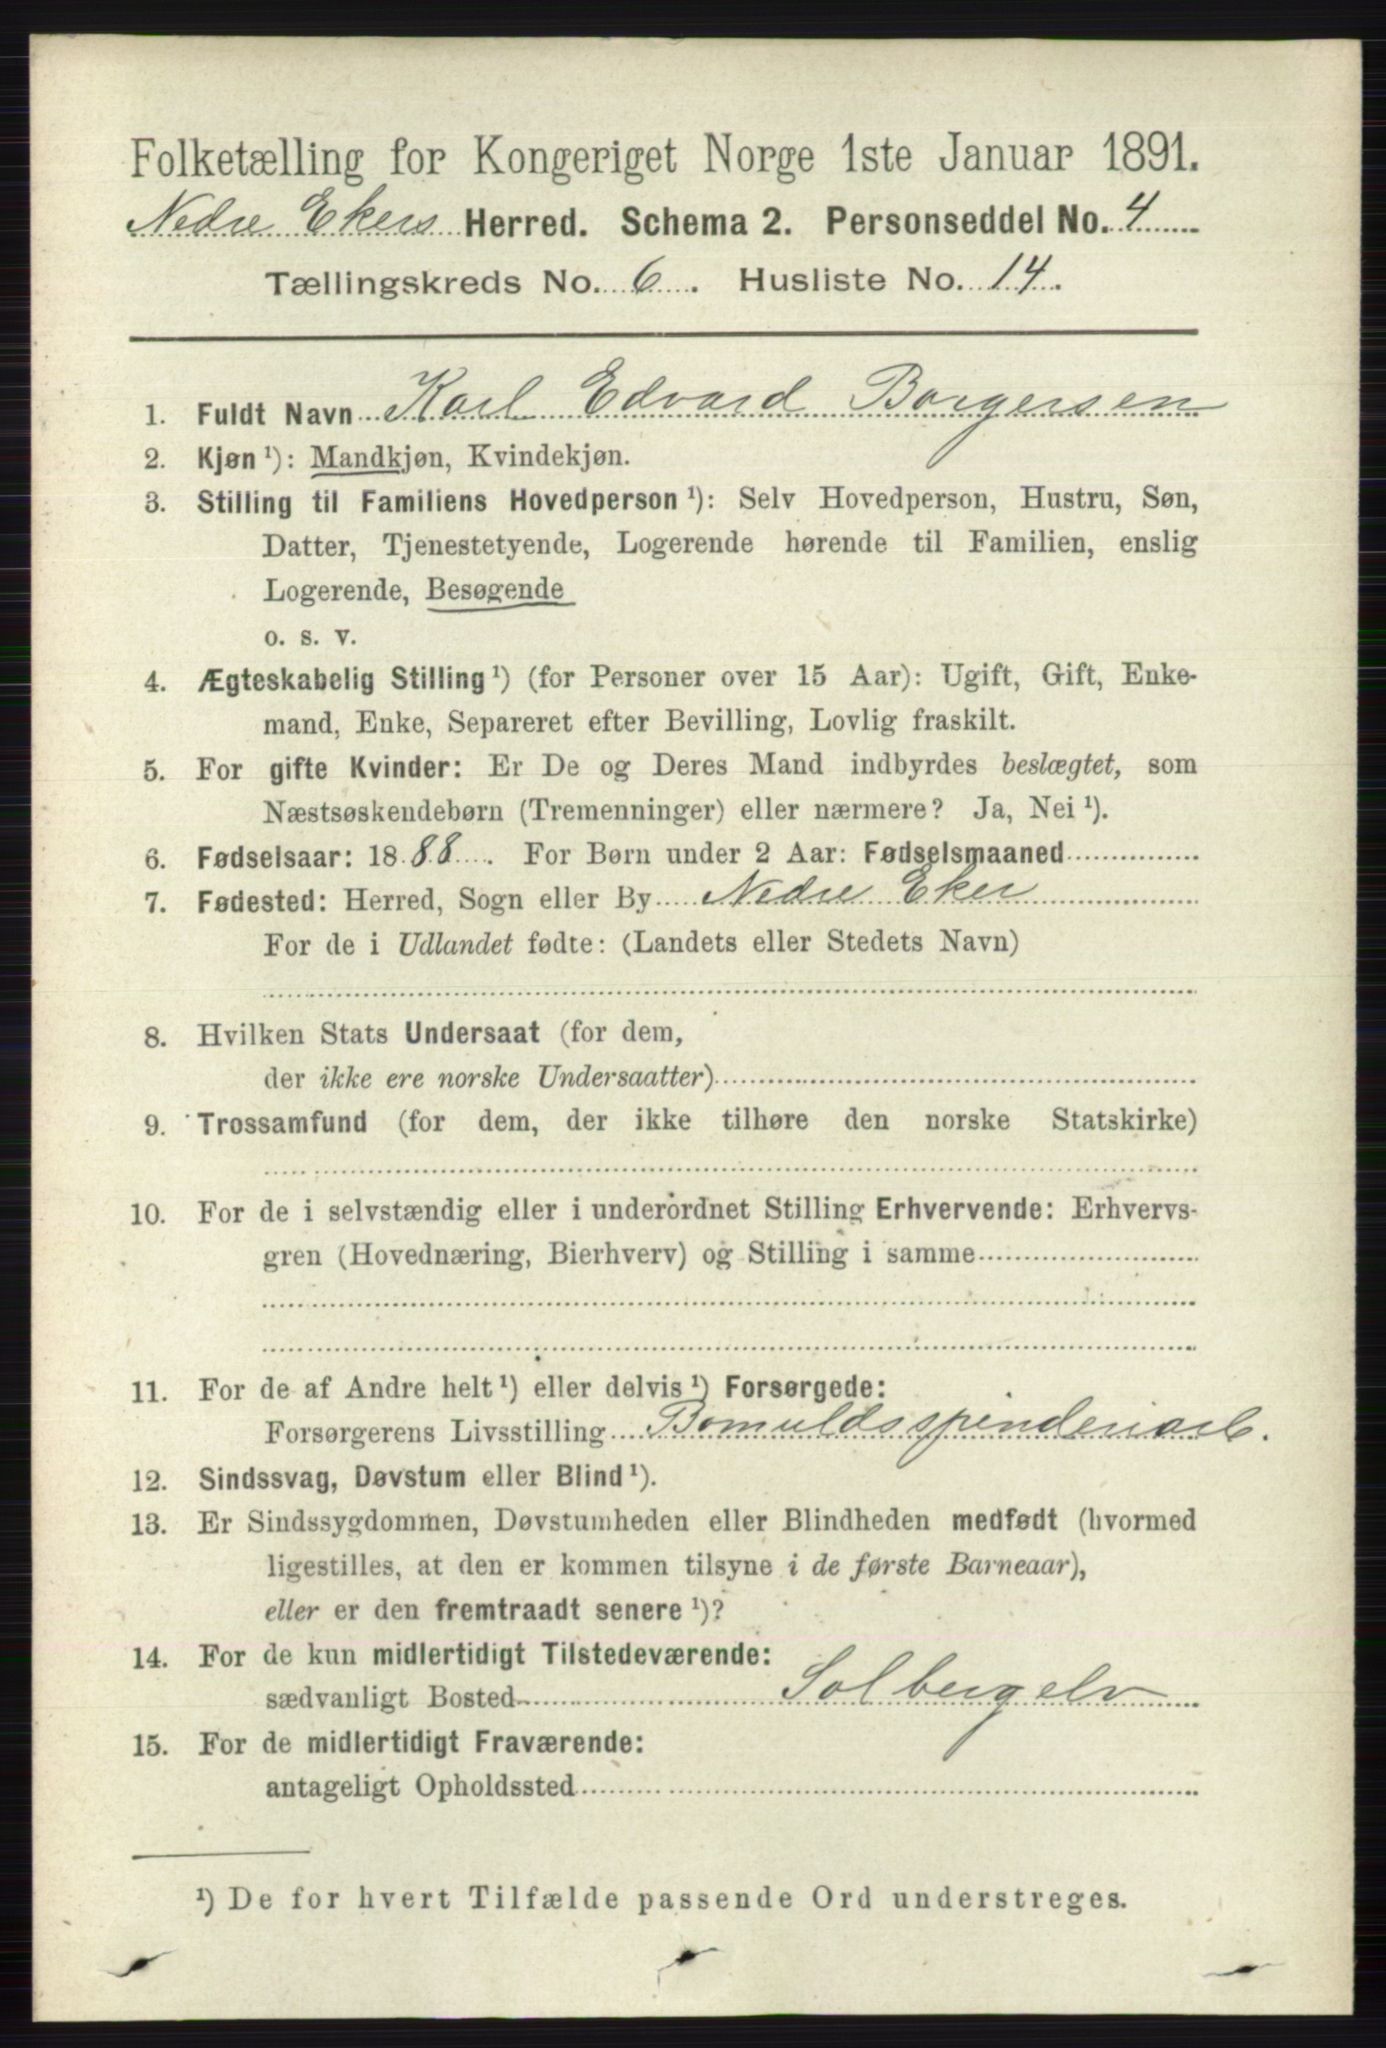 Folketælling for Kongeriget Norge 1ste Januar 1891.
Nedre Ekers Herred. Schema 2. Personseddel No. 4
Tællingskreds No. 6. Husliste No. 14.
1. Fuldt Navn Karl Edvard Borgersen
2. Kjøn ¹): Mandkjøn, Kvindekjøn.
3. Stilling til Familiens Hovedperson ¹): Selv Hovedperson, Hustru, Søn,
Datter, Tjenestetyende, Logerende hørende til Familien, enslig
Logerende, Besøgende
o. s. v.
4. Ægteskabelig Stilling ¹) (for Personer over 15 Aar): Ugift, Gift, Enke-
mand, Enke, Separeret efter Bevilling, Lovlig fraskilt.
5. For gifte Kvinder: Er De og Deres Mand indbyrdes beslægtet, som
Næstsøskendebørn (Tremenninger) eller nærmere? Ja, Nei ¹).
6. Fødselsaar: 1888. For Børn under 2 Aar: Fødselsmaaned
7. Fødested: Herred, Sogn eller By Nedre Eker
For de i Udlandet fødte: (Landets eller Stedets Navn)
8. Hvilken Stats Undersaat (for dem,
der ikke ere norske Undersaatter)
9. Trossamfund (for dem, der ikke tilhøre den norske Statskirke)
10. For de i selvstændig eller i underordnet Stilling Erhvervende: Erhvervs-
gren (Hovednæring, Bierhverv) og Stilling i samme
11. For de af Andre helt ¹) eller delvis ¹) Forsørgede:
Forsørgerens Livsstilling Bomuldsspinderiarb.
12. Sindssvag, Døvstum eller Blind ¹).
13. Er Sindssygdommen, Døvstumheden eller Blindheden medfødt (hvormed
ligestilles, at den er kommen tilsyne i de første Barneaar),
eller er den fremtraadt senere ¹)?
14. For de kun midlertidigt Tilstedeværende:
sædvanligt Bosted Solbergelv
15. For de midlertidigt Fraværende:
antageligt Opholdssted
¹) De for hvert Tilfælde passende Ord understreges.